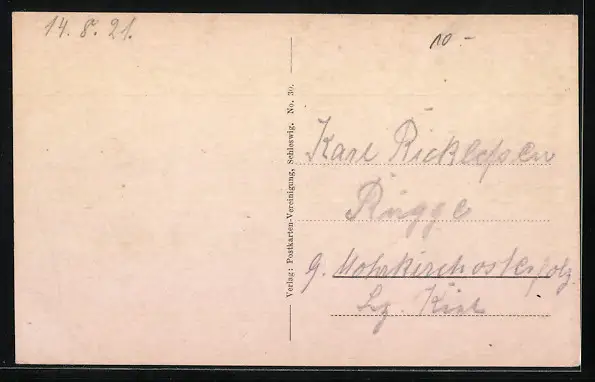 14. 8. 21.
10.-
Verlag: Postkarten-Vereinigung, Schleswig. No. 30.
Karl Ricklefsen
Rügge
g. Mohrkirchosterholz
Bz. Kiel